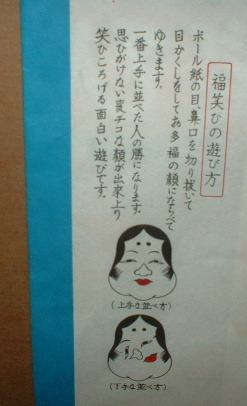 福笑ひの遊び方
ボール紙の目、鼻口を切り抜いて
目かくしをしてお多福の顔にならべて
ゆきます。
一番上手に並べた人の勝になります。
思ひがけない変チコな顔が出来上り
笑ひころげる面白い遊びです。
(上手な並べ方)
(下手な並べ方)